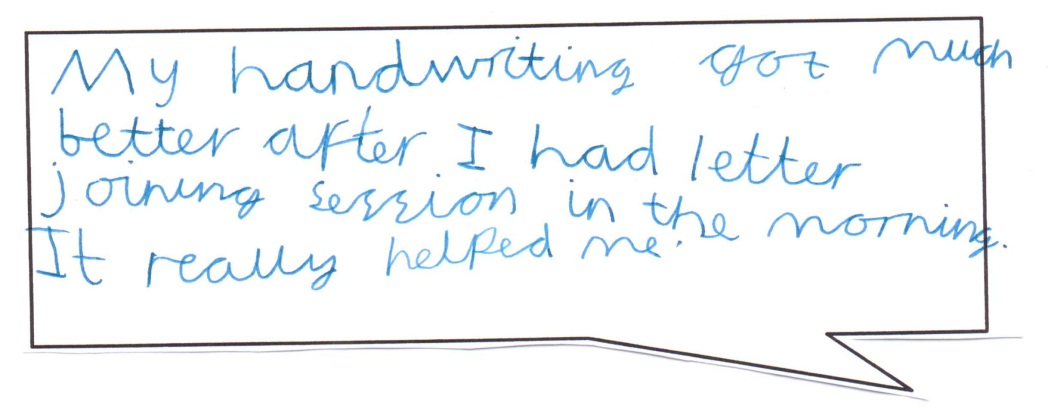 My handwriting got much
better after I had letter
joining session in the morning.
It really helped me.